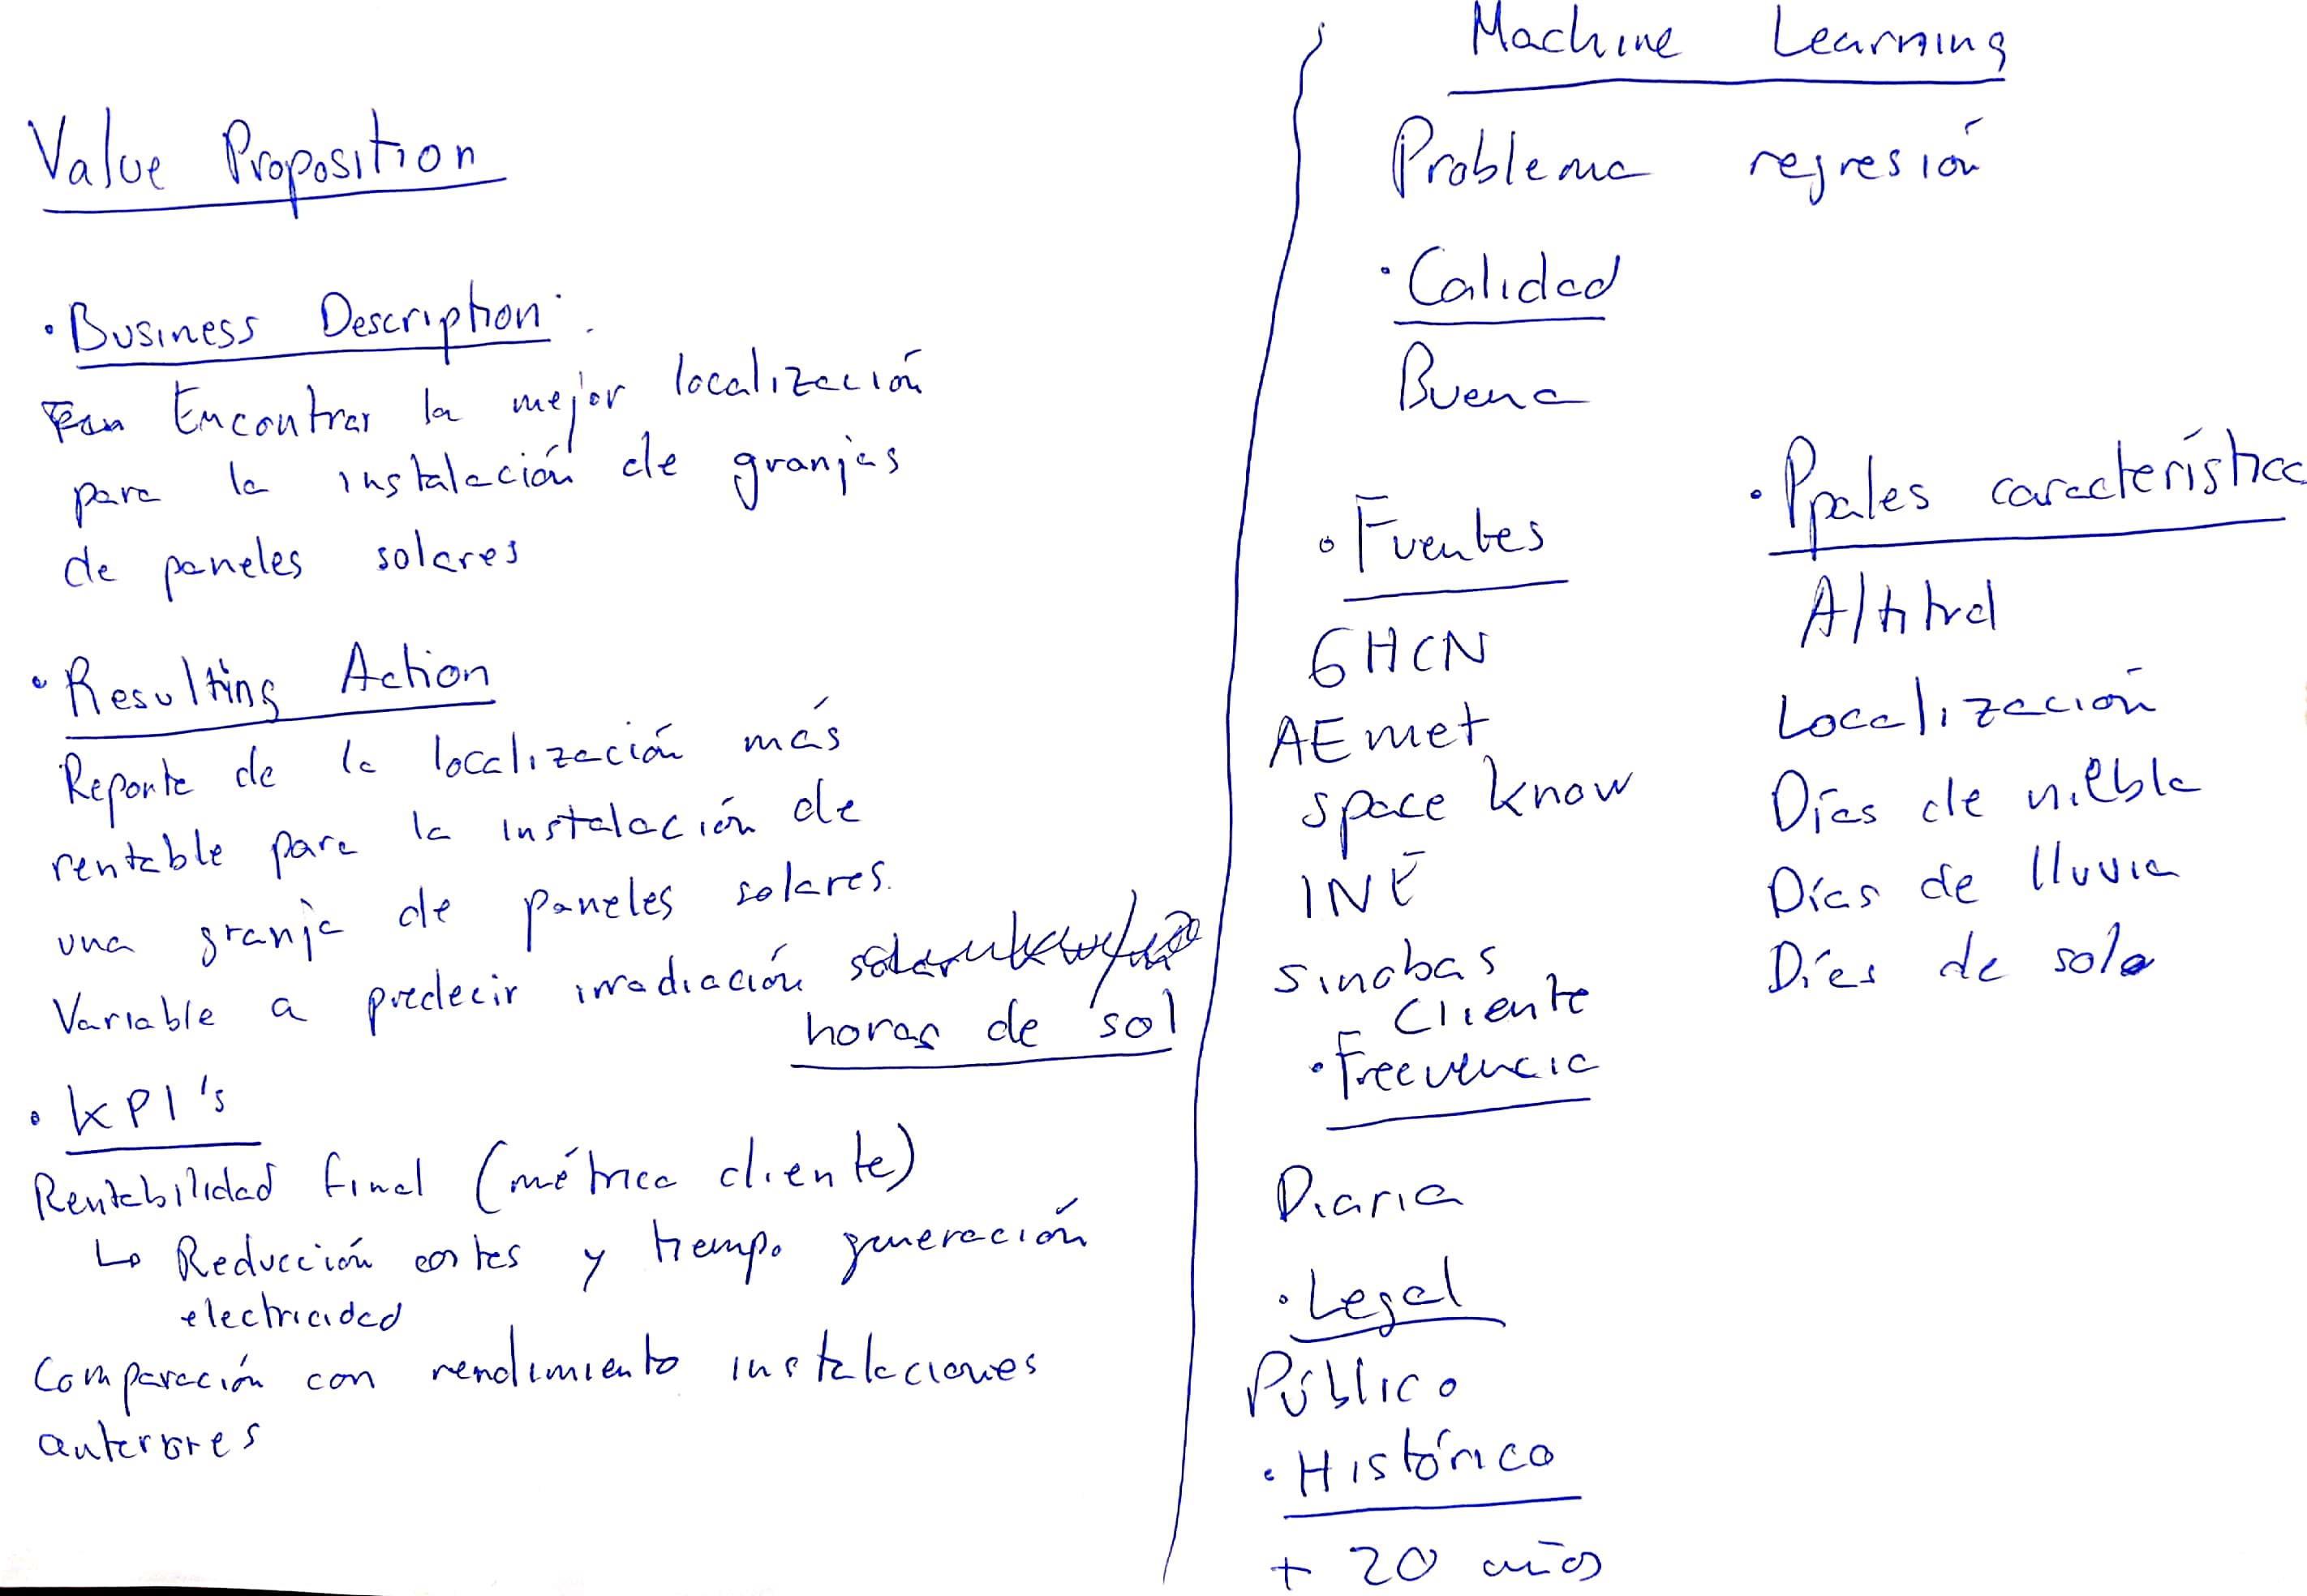 Value Proposition
· Business Description:
Encontrar la mejor localización
para la instalación de granjas
de paneles solares
· Resulting Action
Reporte de la localización más
rentable para la instalación de
una granja de paneles solares.
Variable a predecir irradiación
horas de sol
· KPI's
Rentabilidad final (métrica cliente)
↳ Reducción costes y tiempo generación
electricidad
Comparación con rendimiento instalaciones
anteriores
Machine Learning
Problema regresión
· Calidad
Buena
· Fuentes
GHCN
AEmet
space know
INE
sinobas
Cliente
· Frecuencia
Diaria
· Legal
Público
· Histórico
+ 20 años
· Ppales característica
Altitud
Localización
Días de niebla
Días de lluvia
Días de sol